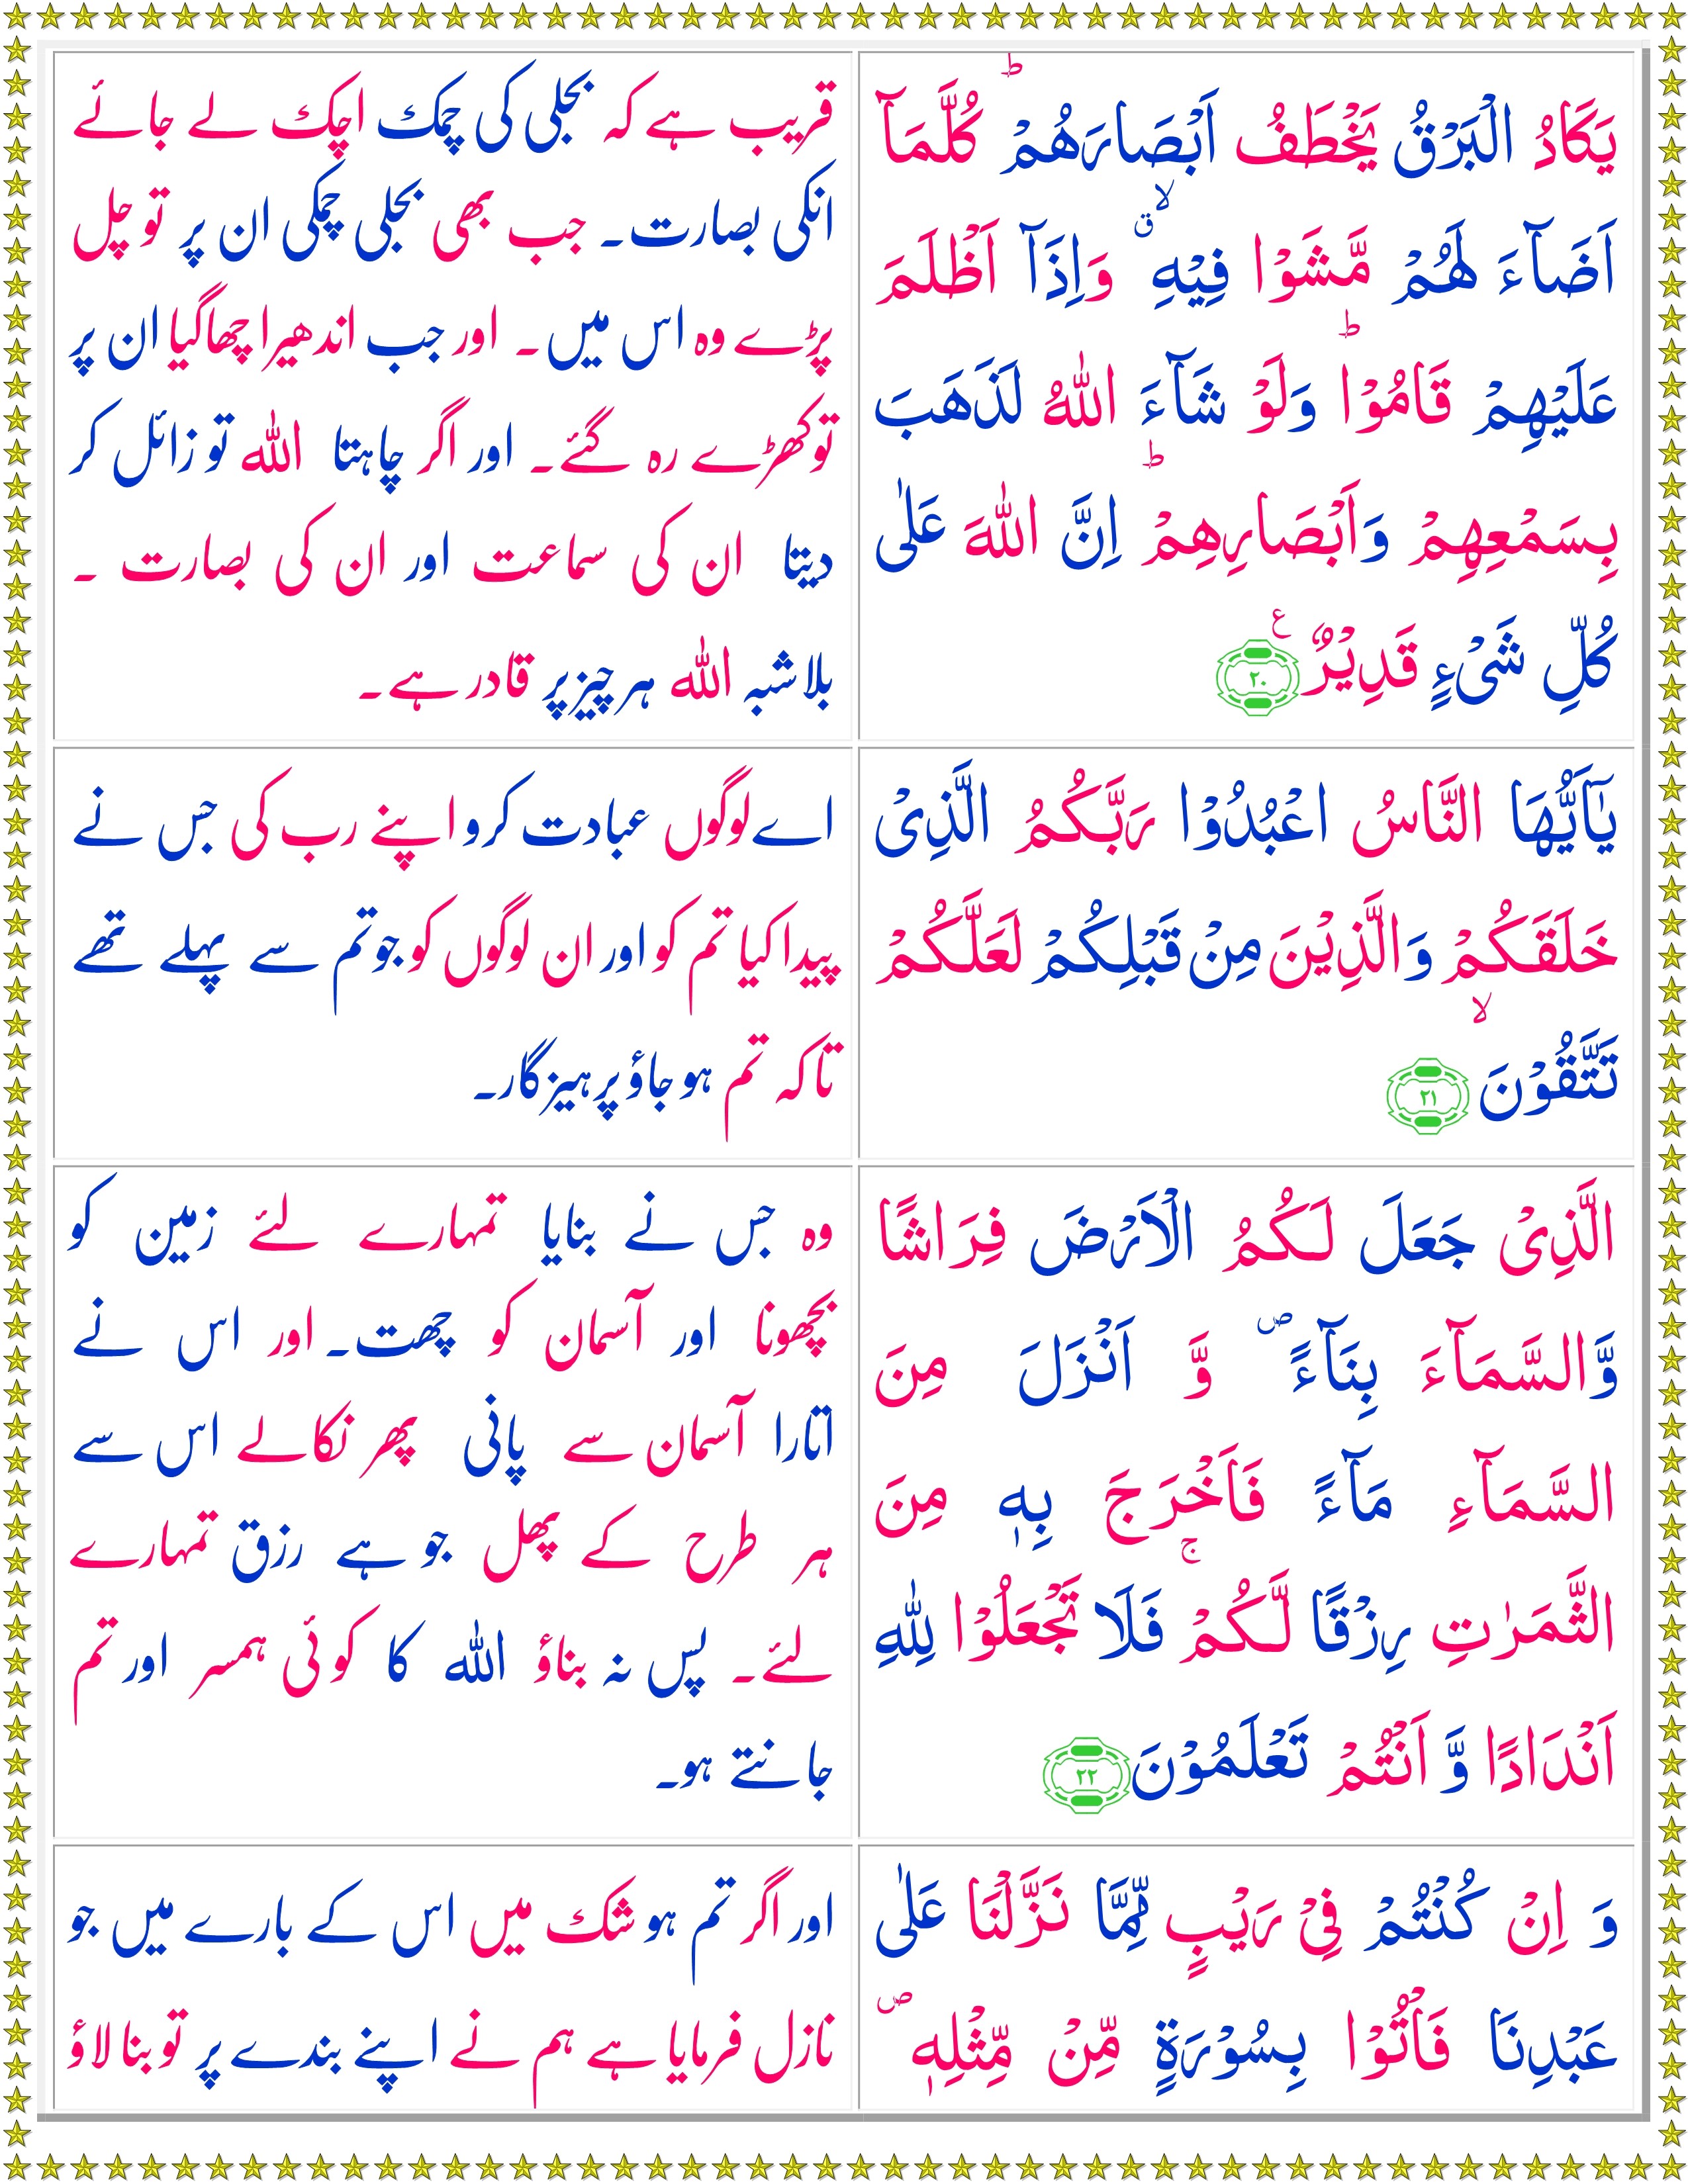 یَكَادُ الْبَرْقُ یَخْطَفُ اَبْصَارَهُمْ ؕ كُلَّمَاۤ
اَضَآءَ لَهُمْ مَّشَوْا فِیْهِ ۙۗ وَاِذَاۤ اَظْلَمَ
عَلَیْهِمْ قَامُوْا ؕ وَلَوْ شَآءَ اللّٰهُ لَذَهَبَ
بِسَمْعِهِمْ وَاَبْصَارِهِمْ ؕ اِنَّ اللّٰهَ عَلٰی
كُلِّ شَیْءٍ قَدِیْرٌ ۠ ع ۲۰
قریب ہے کہ بجلی کی چمک اچک لے جائے
انکی بصارت۔ جب بھی بجلی چمکی ان پر تو چل
پڑے وہ اس میں۔ اور جب اندھیرا چھا گیا ان پر
تو کھڑے رہ گئے۔ اور اگر چاہتا اللہ تو زائل کر
دیتا ان کی سماعت اور ان کی بصارت ۔
بلا شبہ اللہ ہر چیز پر قادر ہے۔
یٰۤاَیُّهَا النَّاسُ اعْبُدُوْا رَبَّكُمُ الَّذِیْ
خَلَقَكُمْ وَالَّذِیْنَ مِنْ قَبْلِكُمْ لَعَلَّكُمْ
تَتَّقُوْنَ ۙ ۲۱
اے لوگوں عبادت کرو اپنے رب کی جس نے
پیدا کیا تم کو اور ان لوگوں کو جو تم سے پہلے تھے
تاکہ تم ہو جاؤ پرہیزگار۔
الَّذِیْ جَعَلَ لَكُمُ الْاَرْضَ فِرَاشًا
وَّالسَّمَآءَ بِنَآءً ۪ وَّ اَنْزَلَ مِنَ
السَّمَآءِ مَآءً فَاَخْرَجَ بِهٖ مِنَ
الثَّمَرٰتِ رِزْقًا لَّكُمْ ۚ فَلَا تَجْعَلُوْا لِلّٰهِ
اَنْدَادًا وَّ اَنْتُمْ تَعْلَمُوْنَ ۲۲
وہ جس نے بنایا تمہارے لئے زمین کو
بچھونا اور آسمان کو چھت۔ اور اس نے
اتارا آسمان سے پانی پھر نکالے اس سے
ہر طرح کے پھل جو ہے رزق تمہارے
لئے۔ پس نہ بناؤ اللہ کا کوئی ہمسر اور تم
جانتے ہو۔
وَ اِنْ كُنْتُمْ فِیْ رَیْبٍ مِّمَّا نَزَّلْنَا عَلٰی
عَبْدِنَا فَاْتُوْا بِسُوْرَةٍ مِّنْ مِّثْلِهٖ ۪
اور اگر تم ہو شک میں اس کے بارے میں جو
نازل فرمایا ہے ہم نے اپنے بندے پر تو بنا لاؤ